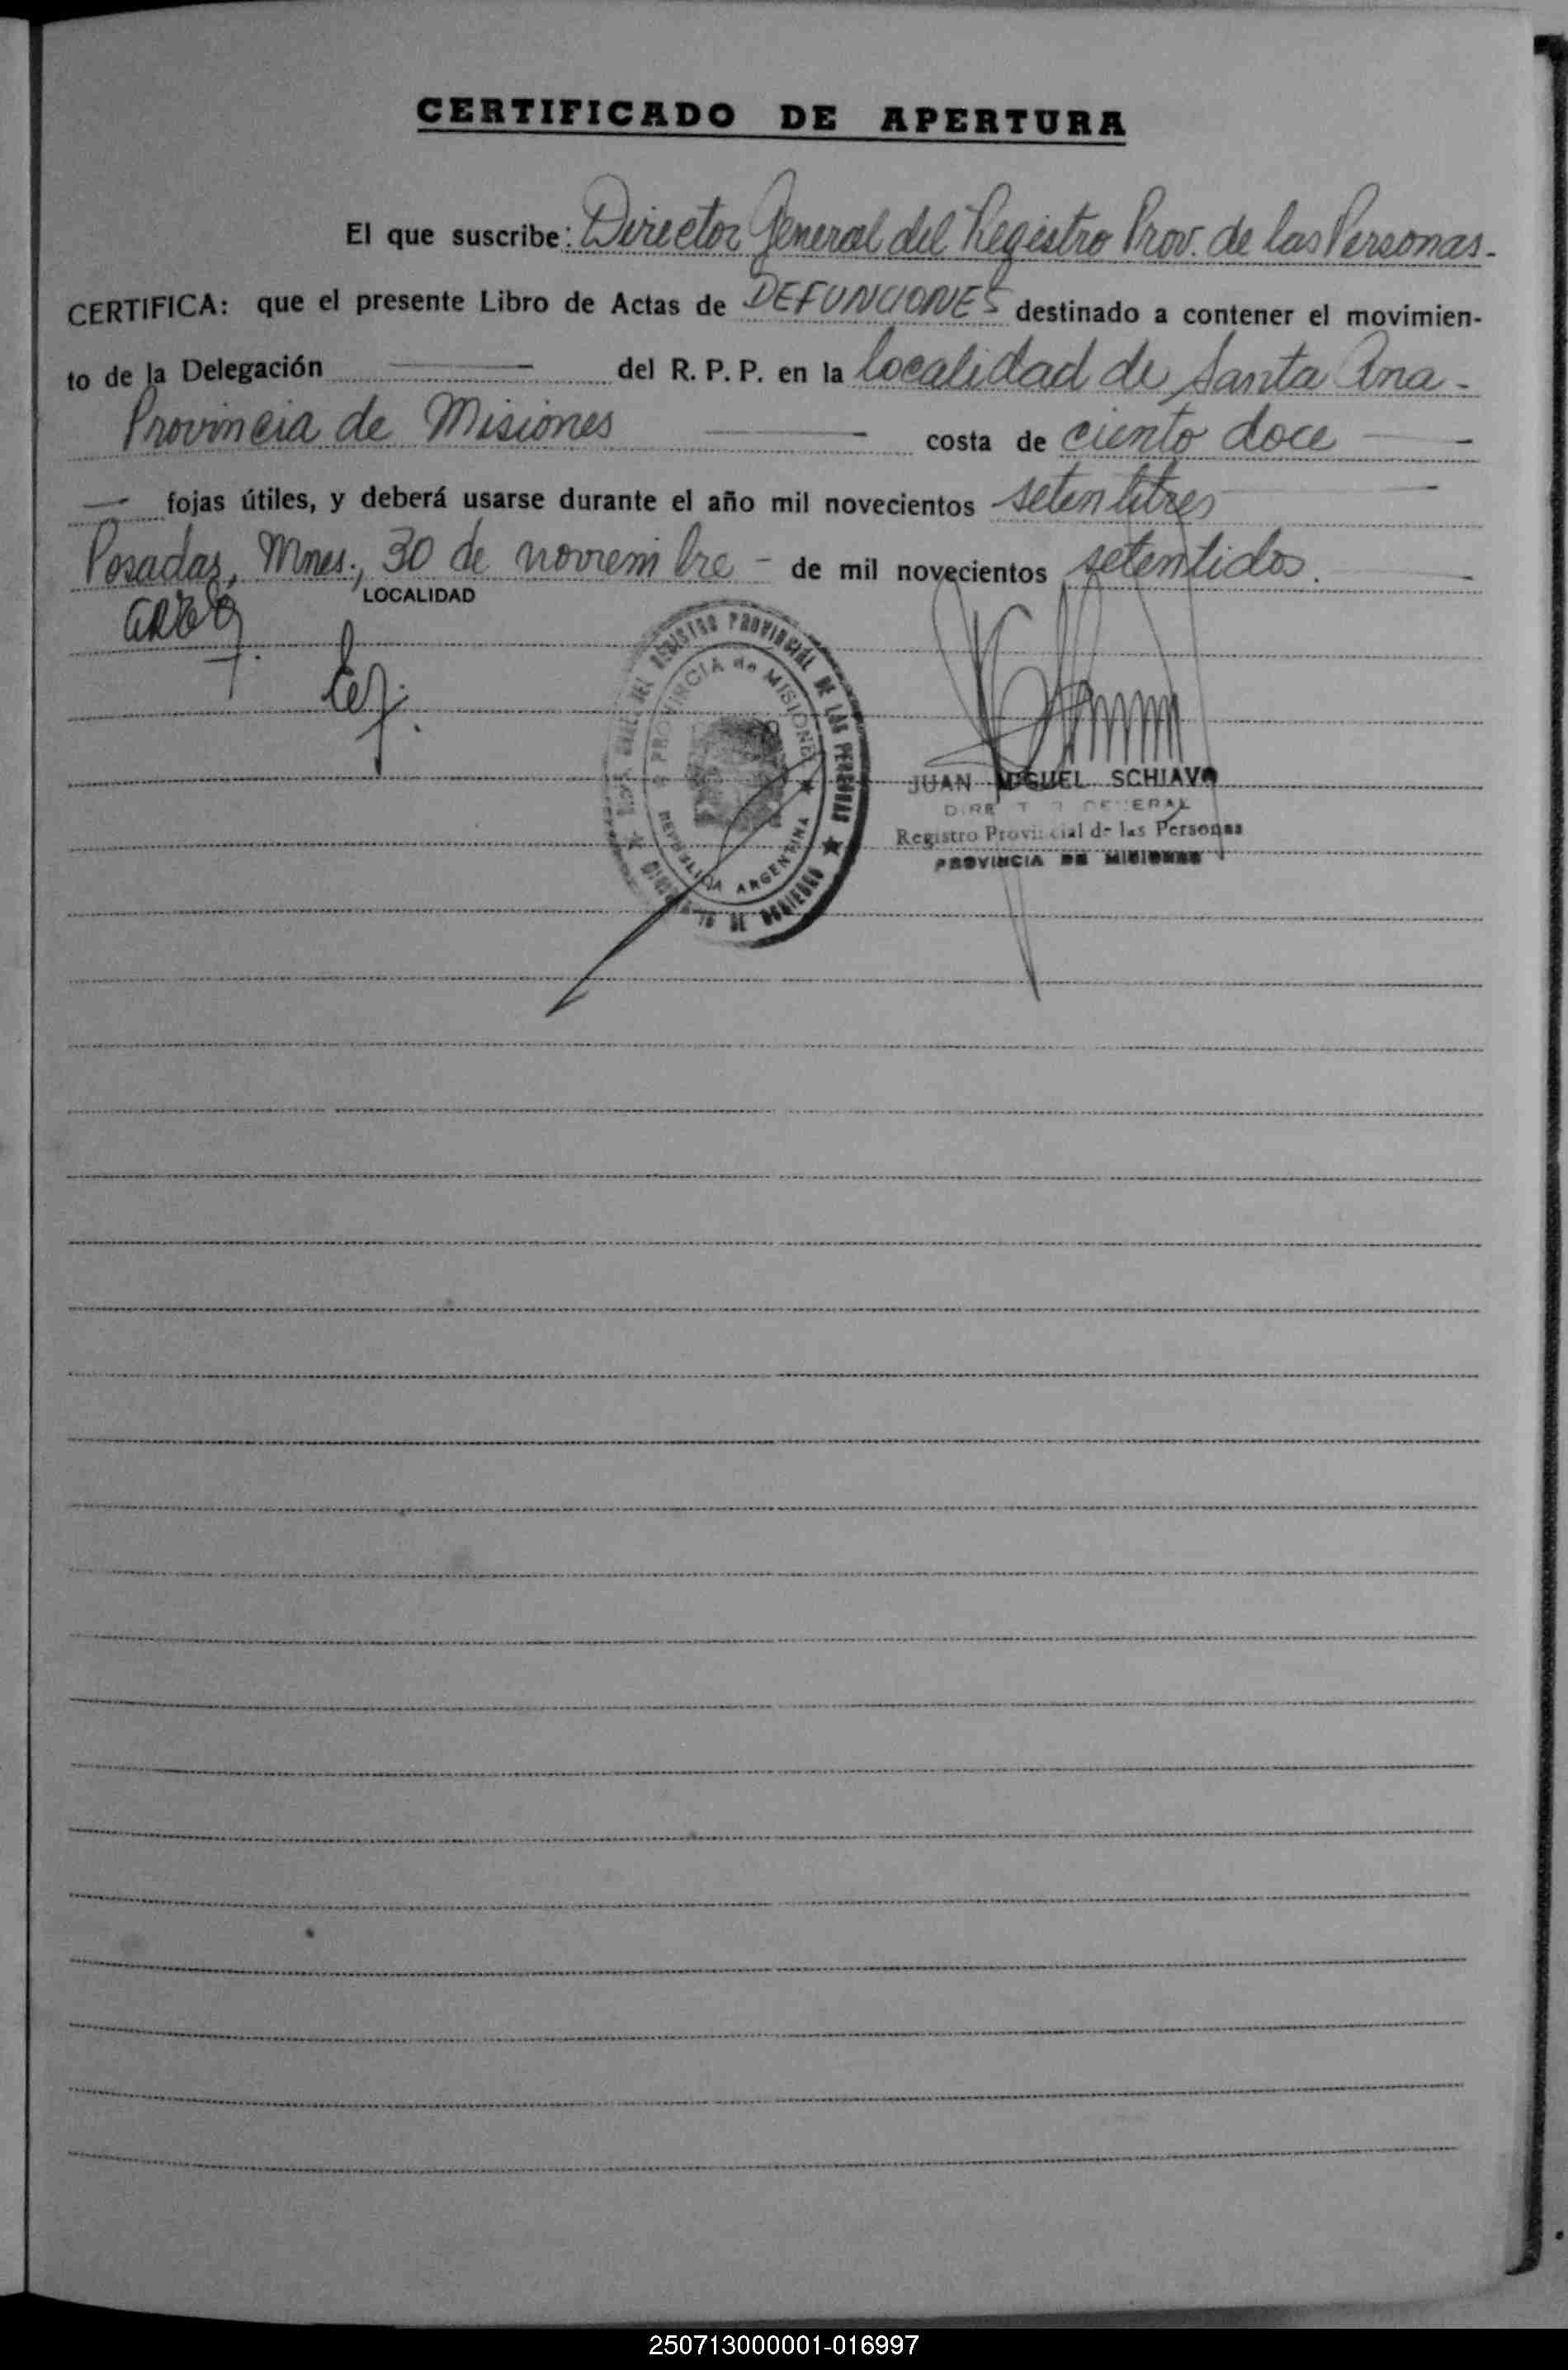 CERTIFICADO DE APERTURA
El que suscribe: Director General del Registro Prov. de las Personas.-
CERTIFICA: que el presente Libro de Actas de DEFUNCIONES destinado a contener el movimien-
to de la Delegación del R. P. P. en la localidad de Santa Ana -
Provincia de Misiones costa de ciento doce
fojas útiles, y deberá usarse durante el año mil novecientos setentitres
Posadas, Mnes., 30 de noviembre - de mil novecientos setentidos.
LOCALIDAD
REGISTRO PROVINCIAL DE LAS PERSONAS
PROVINCIA de MISIONES
REPUBLICA ARGENTINA
MINISTERIO DE GOBIERNO
JUAN MIGUEL SCHIAVO
DIRECTOR GENERAL
Registro Provincial de las Personas
PROVINCIA DE MISIONES
250713000001-016997